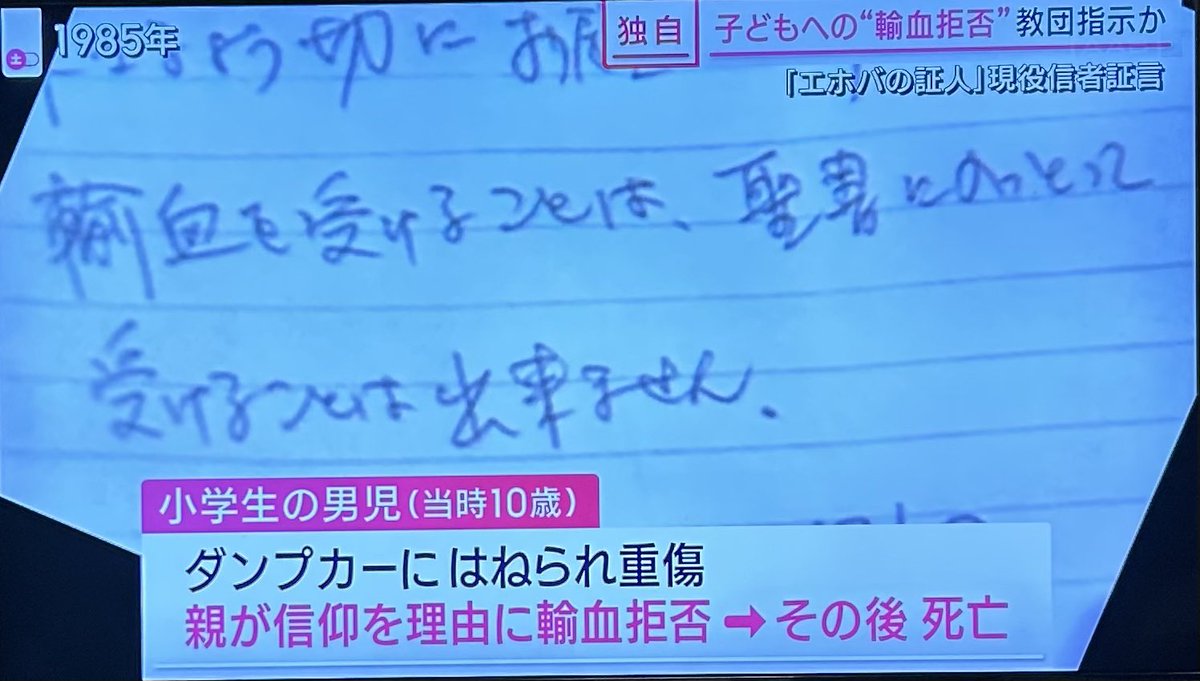 1985年
独自
子どもへの“輸血拒否”教団指示か
「エホバの証人」現役信者証言
切に お
輸血を受けることは、聖書にのっとって
受けることは出来ません。
小学生の男児（当時10歳）
ダンプカーにはねられ重傷
親が信仰を理由に輸血拒否➡その後 死亡